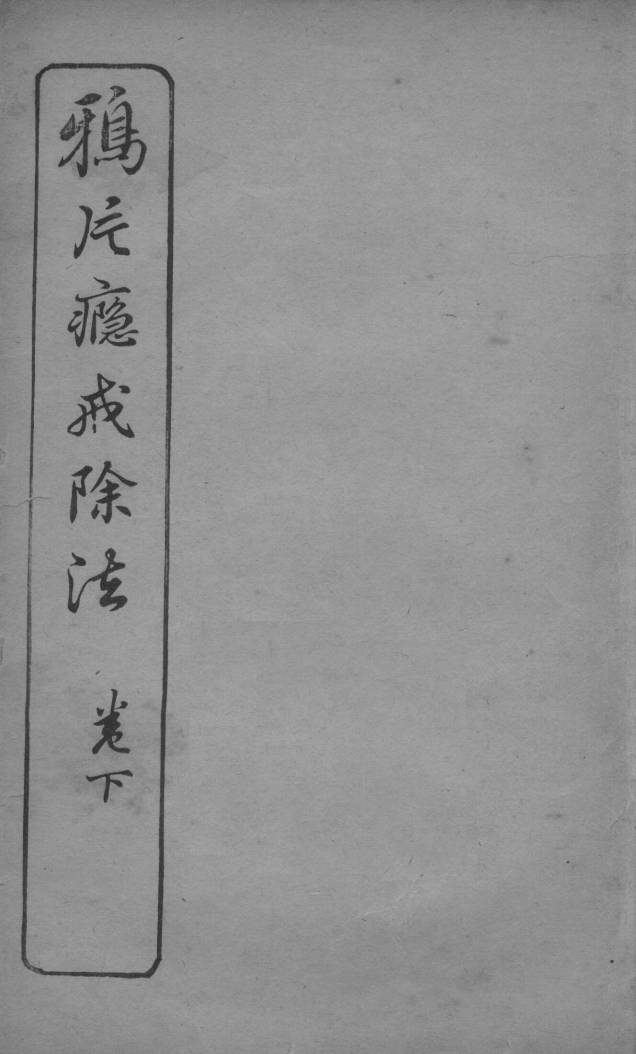 鴉片癮戒除法 卷下